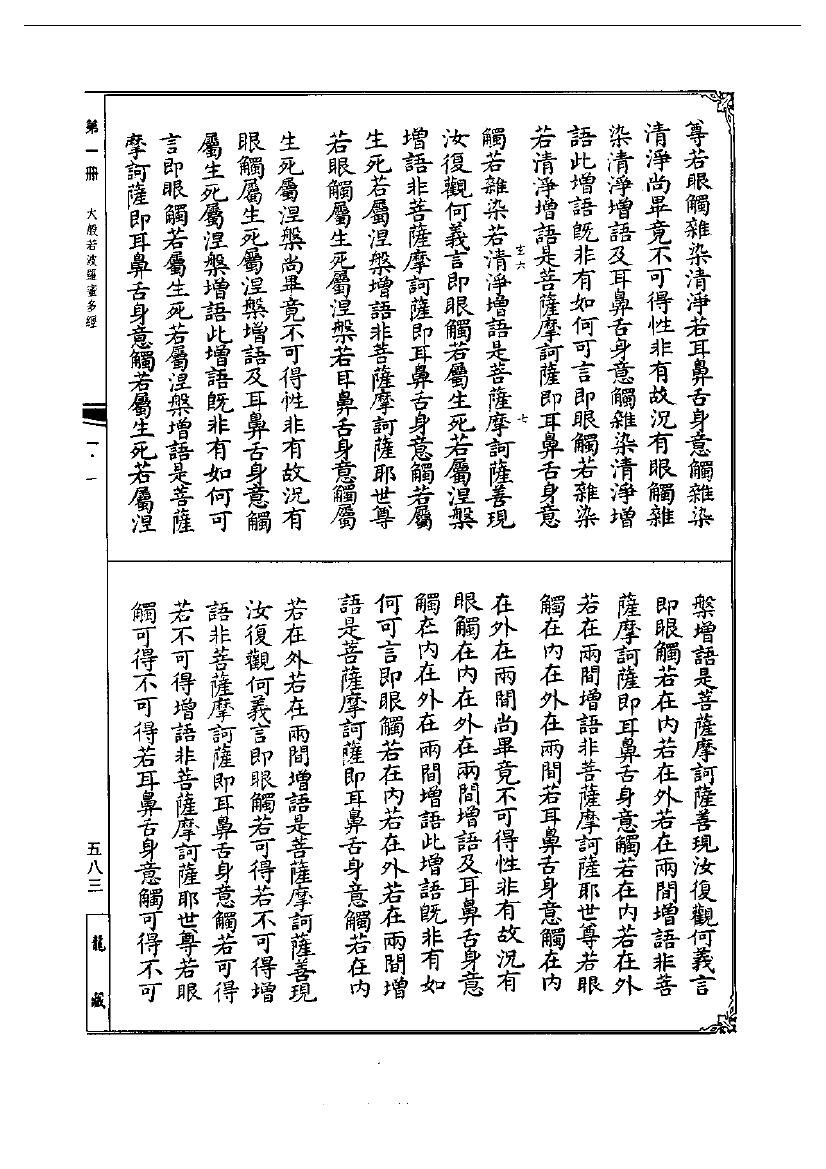 尊若眼觸雜染清淨若耳鼻舌身意觸雜染
清淨尚畢竟不可得性非有故況有眼觸雜
染清淨增語及耳鼻舌身意觸雜染清淨增
語此增語旣非有如何可言即眼觸若雜染
若清淨增語是菩薩摩訶薩即耳鼻舌身意
觸若雜染若清淨增語是菩薩摩訶薩善現
汝復觀何義言即眼觸若屬生死若屬涅槃
增語非菩薩摩訶薩即耳鼻舌身意觸若屬
生死若屬涅槃增語非菩薩摩訶薩耶世尊
若眼觸屬生死屬涅槃若耳鼻舌身意觸屬
生死屬涅槃尚畢竟不可得性非有故況有
眼觸屬生死屬涅槃增語及耳鼻舌身意觸
屬生死屬涅槃增語此增語旣非有如何可
言即眼觸若屬生死若屬涅槃增語是菩薩
摩訶薩即耳鼻舌身意觸若屬生死若屬涅
槃增語是菩薩摩訶薩善現汝復觀何義言
即眼觸若在內若在外若在兩間增語非菩
薩摩訶薩即耳鼻舌身意觸若在內若在外
若在兩間增語非菩薩摩訶薩耶世尊若眼
觸在內在外在兩間若耳鼻舌身意觸在內
在外在兩間尚畢竟不可得性非有故況有
眼觸在內在外在兩間增語及耳鼻舌身意
觸在內在外在兩間增語此增語旣非有如
何可言即眼觸若在內若在外若在兩間增
語是菩薩摩訶薩即耳鼻舌身意觸若在內
若在外若在兩間增語是菩薩摩訶薩善現
汝復觀何義言即眼觸若可得若不可得增
語非菩薩摩訶薩即耳鼻舌身意觸若可得
若不可得增語非菩薩摩訶薩耶世尊若眼
觸可得不可得若耳鼻舌身意觸可得不可
第一冊 大般若波羅蜜多經
一·一
五八三
龍藏